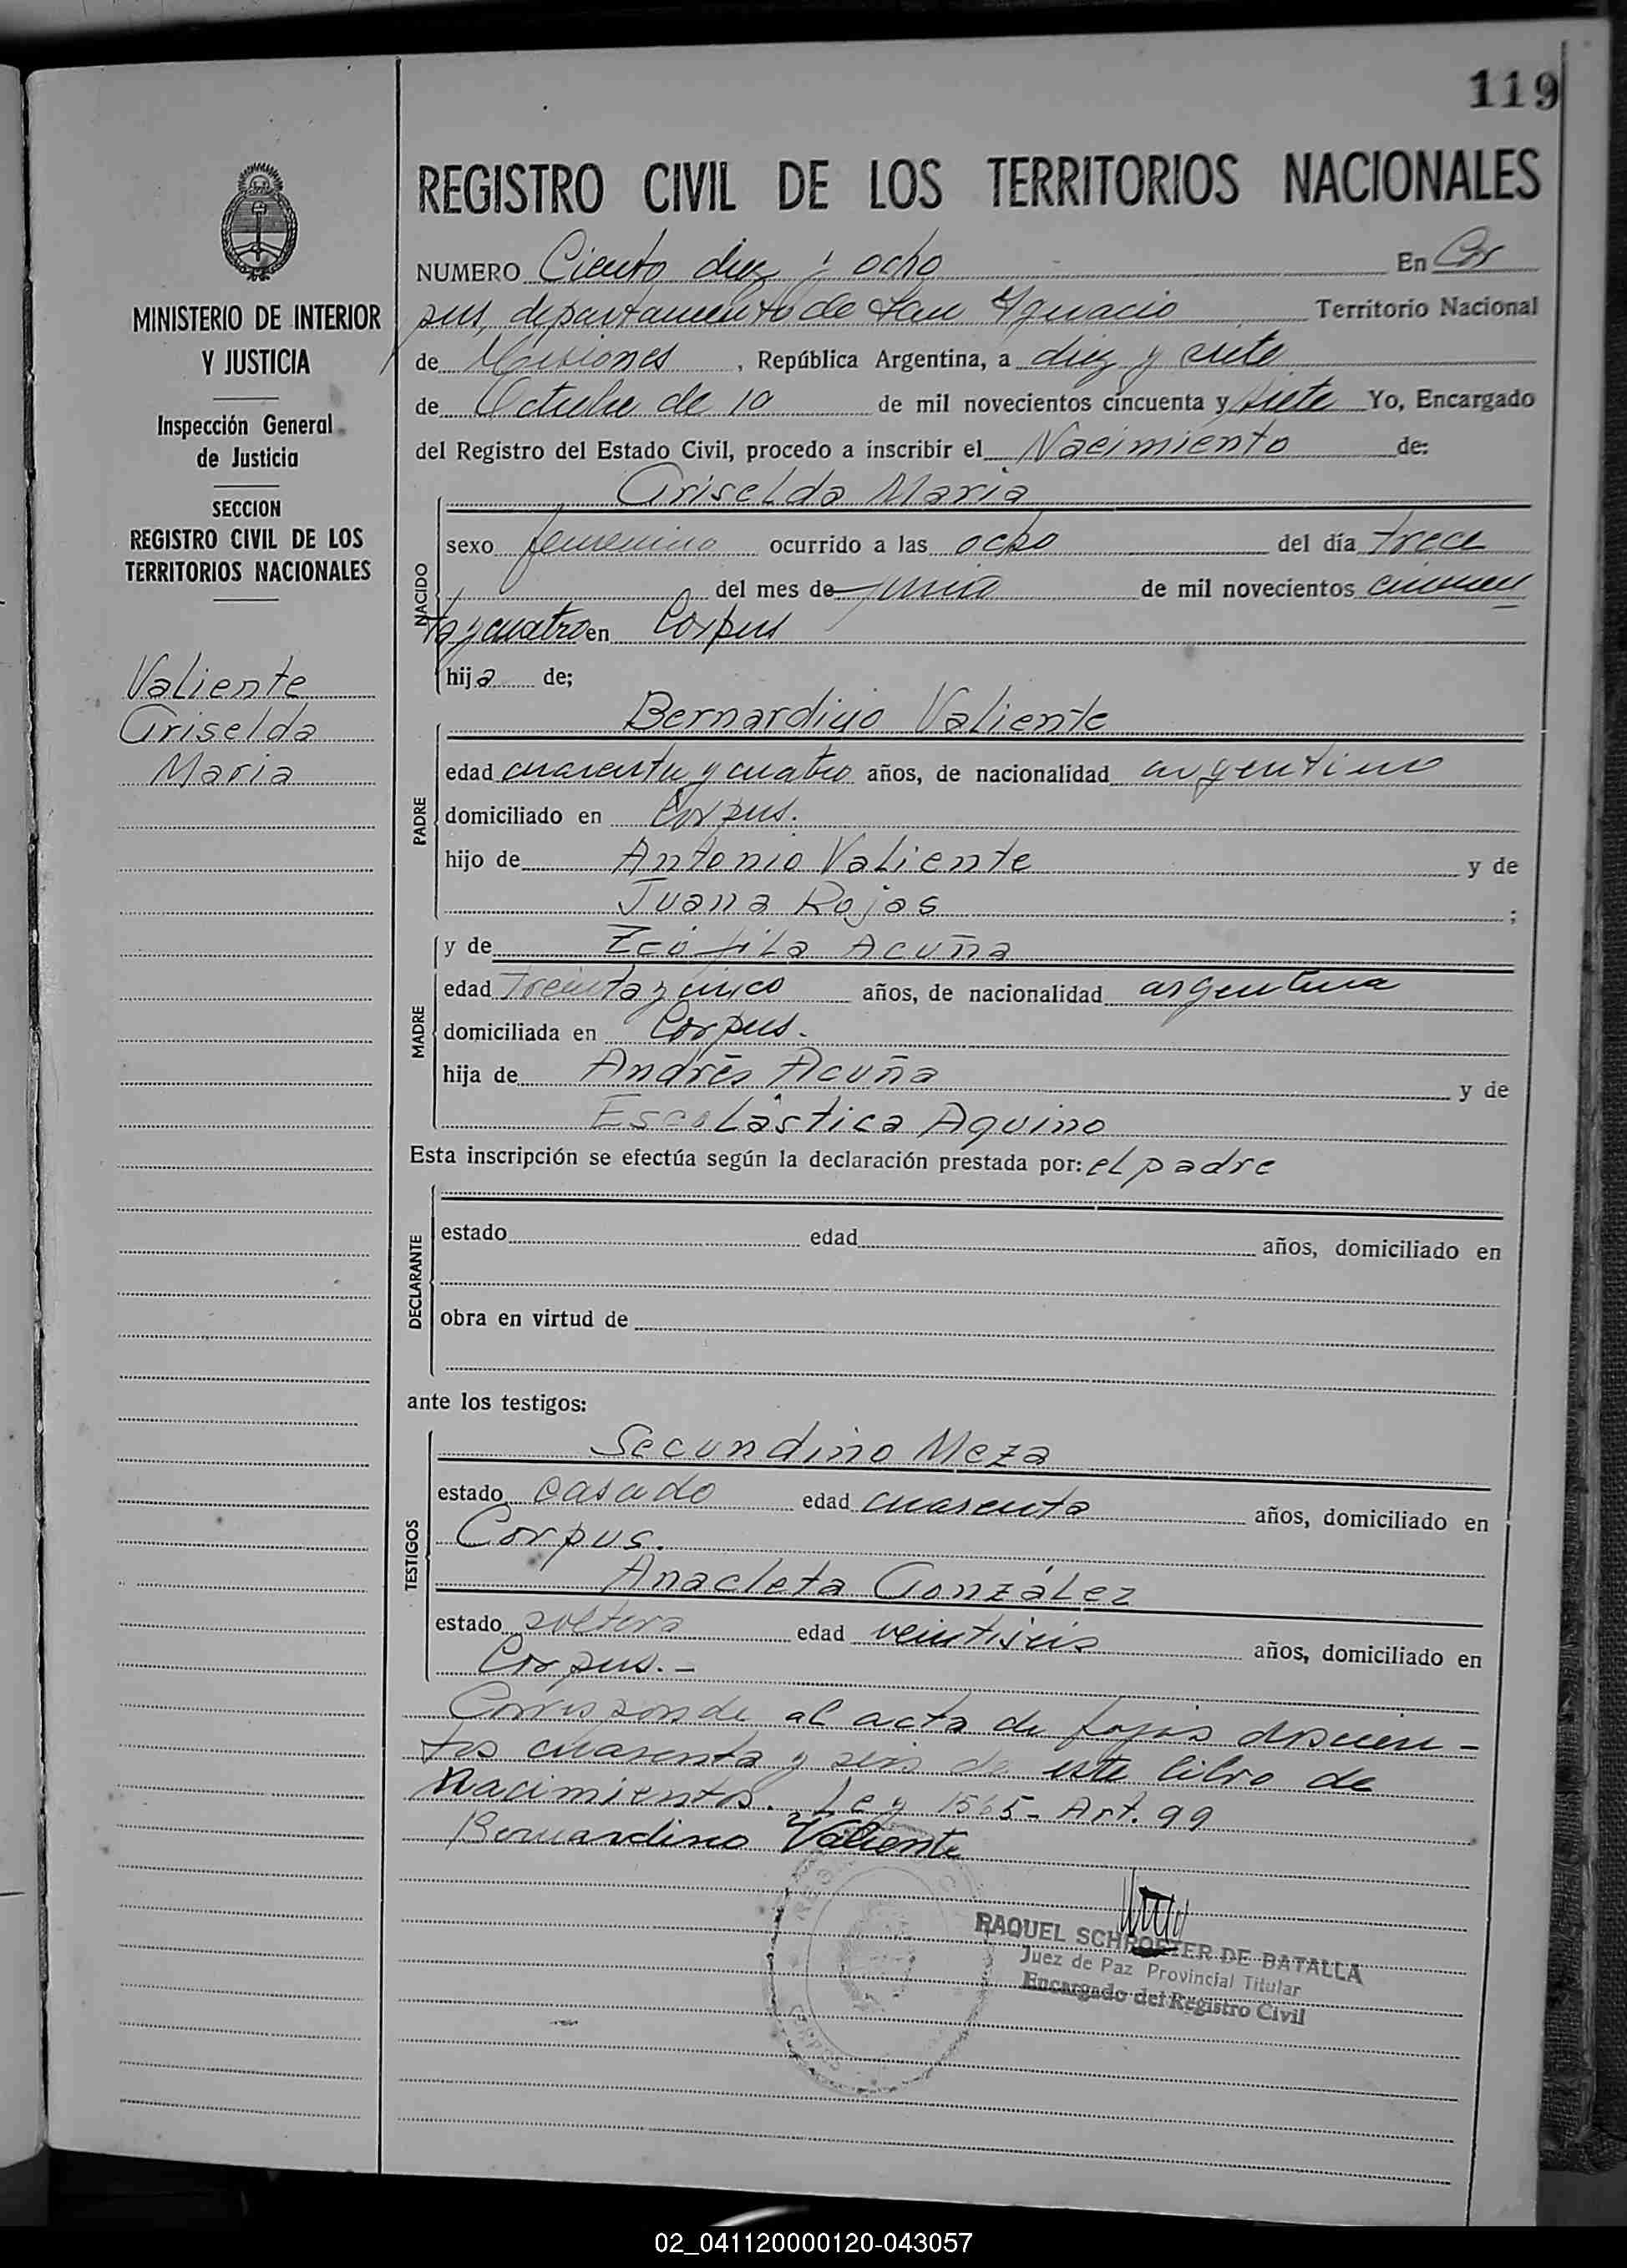 119
REGISTRO CIVIL DE LOS TERRITORIOS NACIONALES
MINISTERIO DE INTERIOR
Y JUSTICIA
Inspección General
de Justicia
SECCION
REGISTRO CIVIL DE LOS
TERRITORIOS NACIONALES
Valiente
Griselda
Maria
NUMERO Ciento diez y ocho En Cor
pus, departamento de San Ignacio Territorio Nacional
de Misiones, República Argentina, a diez y siete
de Octubre de 10 de mil novecientos cincuenta y siete Yo, Encargado
del Registro del Estado Civil, procedo a inscribir el Nacimiento de:
NACIDO
Griselda Maria
sexo femenino ocurrido a las ocho del día trece
del mes de junio de mil novecientos cincuen
ta y cuatro en Corpus
hija de;
PADRE
Bernardino Valiente
edad cuarenta y cuatro años, de nacionalidad argentino
domiciliado en Corpus.
hijo de Antonio Valiente y de
Juana Rojas ;
MADRE
y de Teófila Acuña
edad Treinta y cinco años, de nacionalidad argentina
domiciliada en Corpus.
hija de Andrés Acuña y de
Escolástica Aquino
Esta inscripción se efectúa según la declaración prestada por: el padre
DECLARANTE
estado edad años, domiciliado en
obra en virtud de
ante los testigos:
TESTIGOS
Secundino Meza
estado casado edad cuarenta años, domiciliado en
Corpus.
Anacleta González
estado soltera edad veintiseis años, domiciliado en
Corpus.-
Corresponde al acta de fojas doscien-
tos cuarenta y seis de este libro de
Nacimientos. Ley 1565- Art. 99
Bernardino Valiente
RAQUEL SCHROETER DE BATALLA
Juez de Paz Provincial Titular
Encargado del Registro Civil
02_041120000120-043057